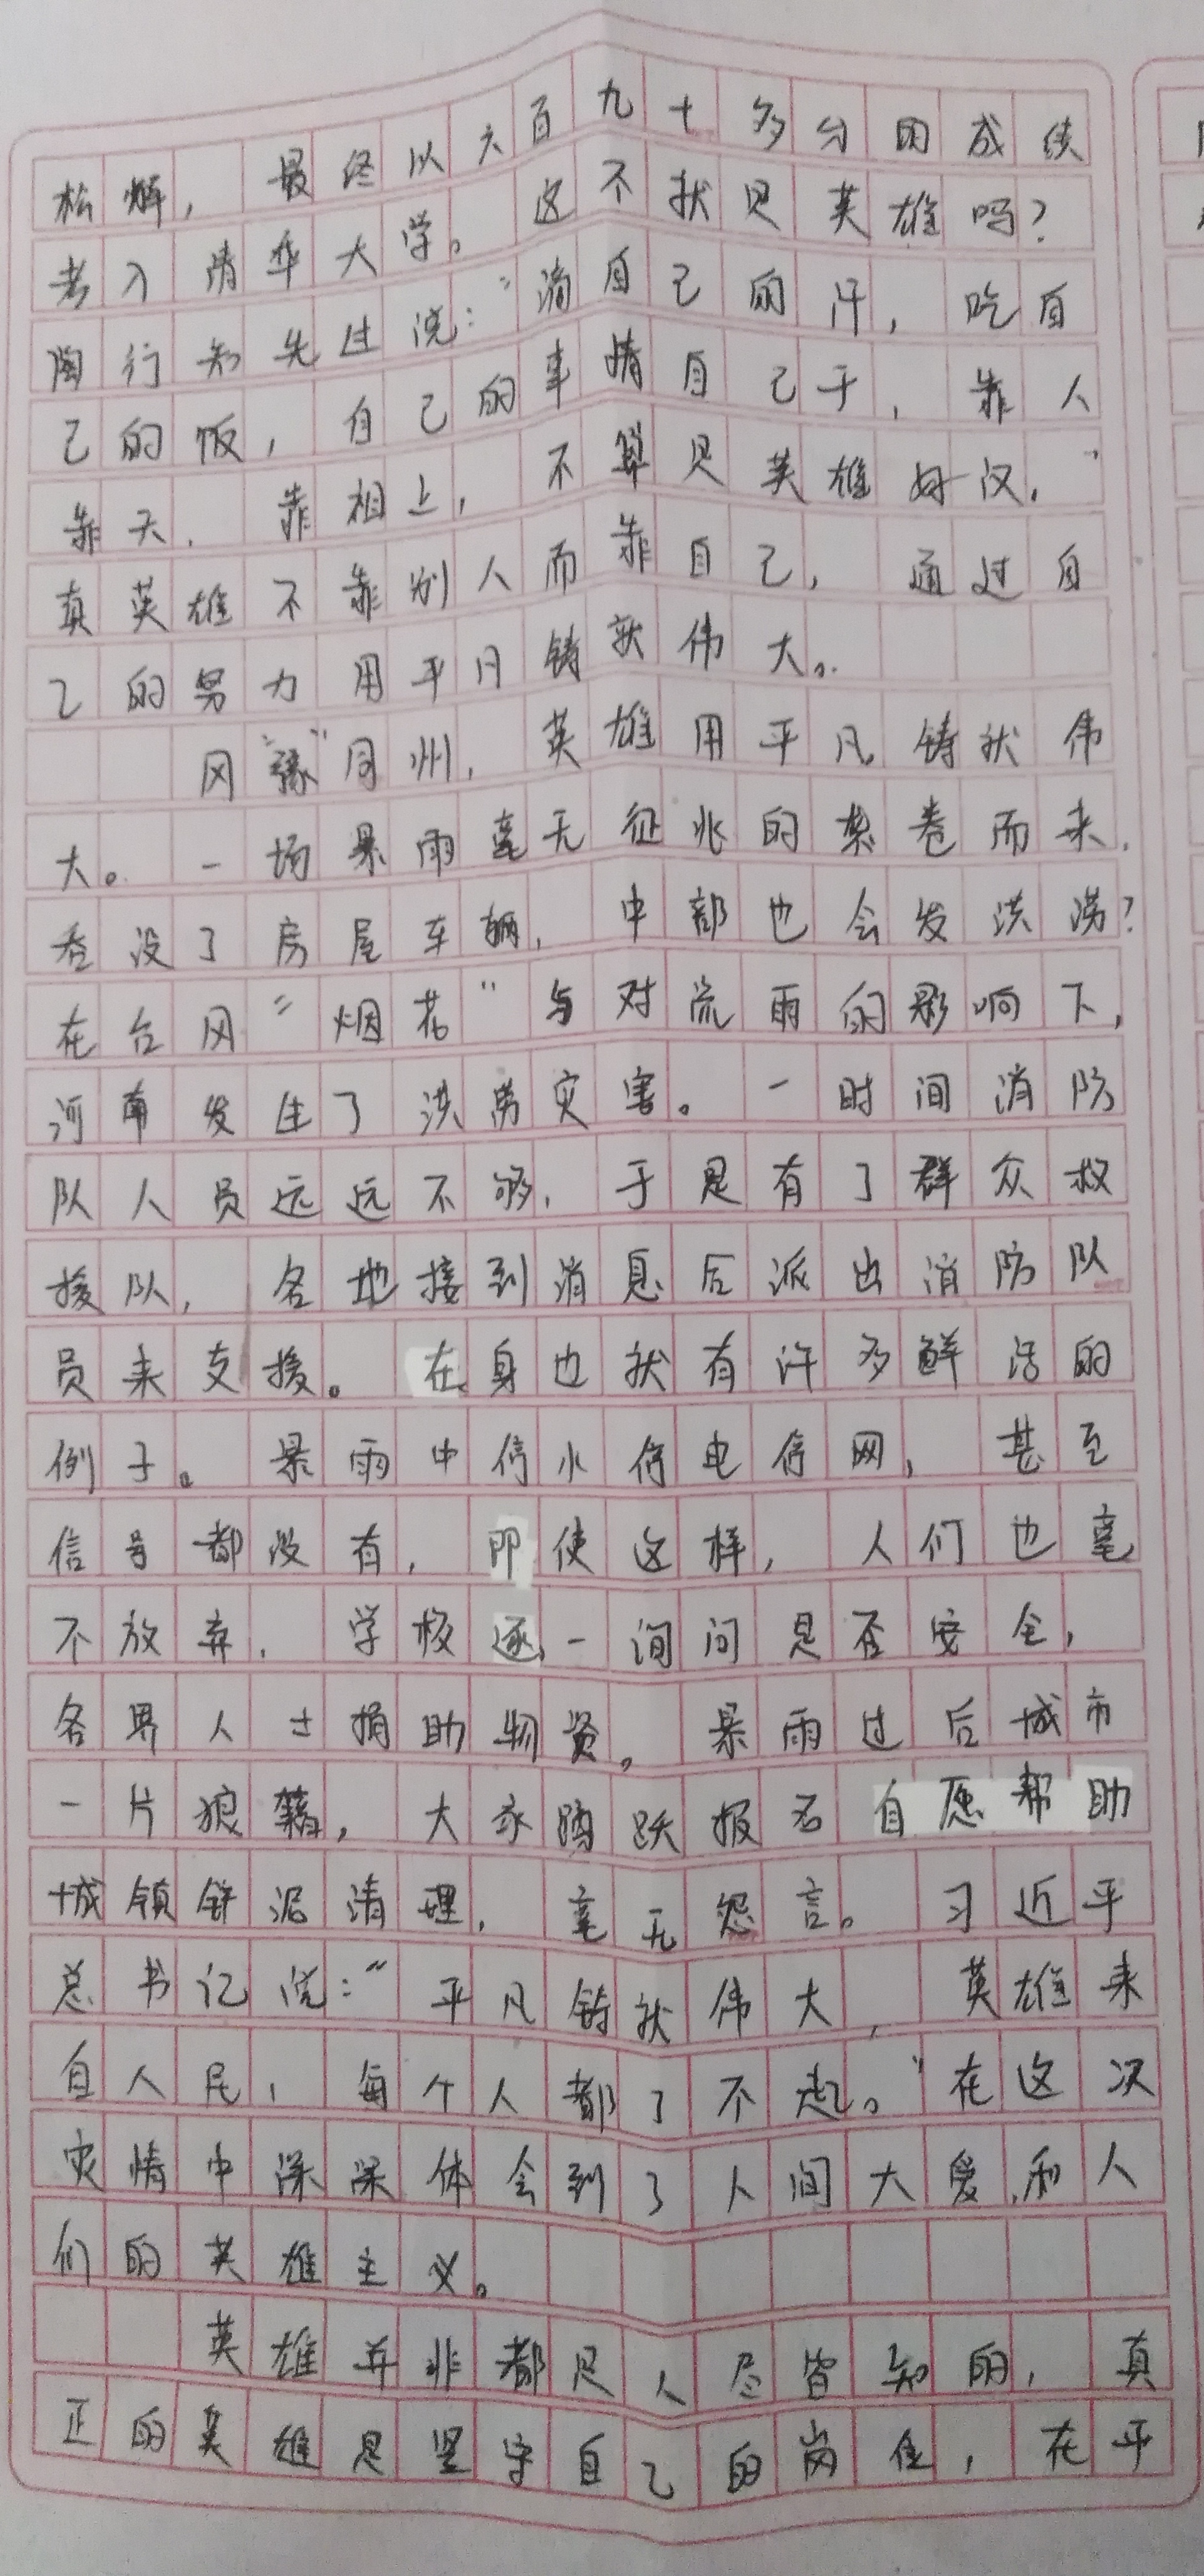 松懈，最终以六百九十多分的成绩
考入清华大学。这不就是英雄吗？
陶行知先过说：“滴自己的汗，吃自
己的饭，自己的事情自己干，靠人
靠天．靠祖上，不算是英雄好汉，”
真英雄不靠别人而靠自己，通过自
己的努力用平凡铸就伟大。
风“豫”同州，英雄用平凡铸就伟
大。一场暴雨毫无征兆的袭卷而来，
吞没了房屋车辆，中部也会发洪涝？
在台风“烟花”与对流雨的影响下，
河南发生了洪涝灾害。一时间消防
队人员远远不够，于是有了群众救
援队，各地接到消息后派出消防队
员来支援。在身也就有许多鲜活的
例子。暴雨中停水停电停网，甚至
信号都没有，即使这样，人们也毫
不放弃，学校逐一询问是否安全，
各界人士捐助物资。暴雨过后城市
一片狼藉，大家踊跃报名自愿帮助
城镇淤泥清理，毫无怨言。习近平
总书记说：“平凡铸就伟大，英雄来
自人民，每个人都了不起。”在这次
灾情中深深体会到了人间大爱和人
们的英雄主义。
英雄并非都是人尽皆知的，真
正的英雄是坚守自己的岗位，在平